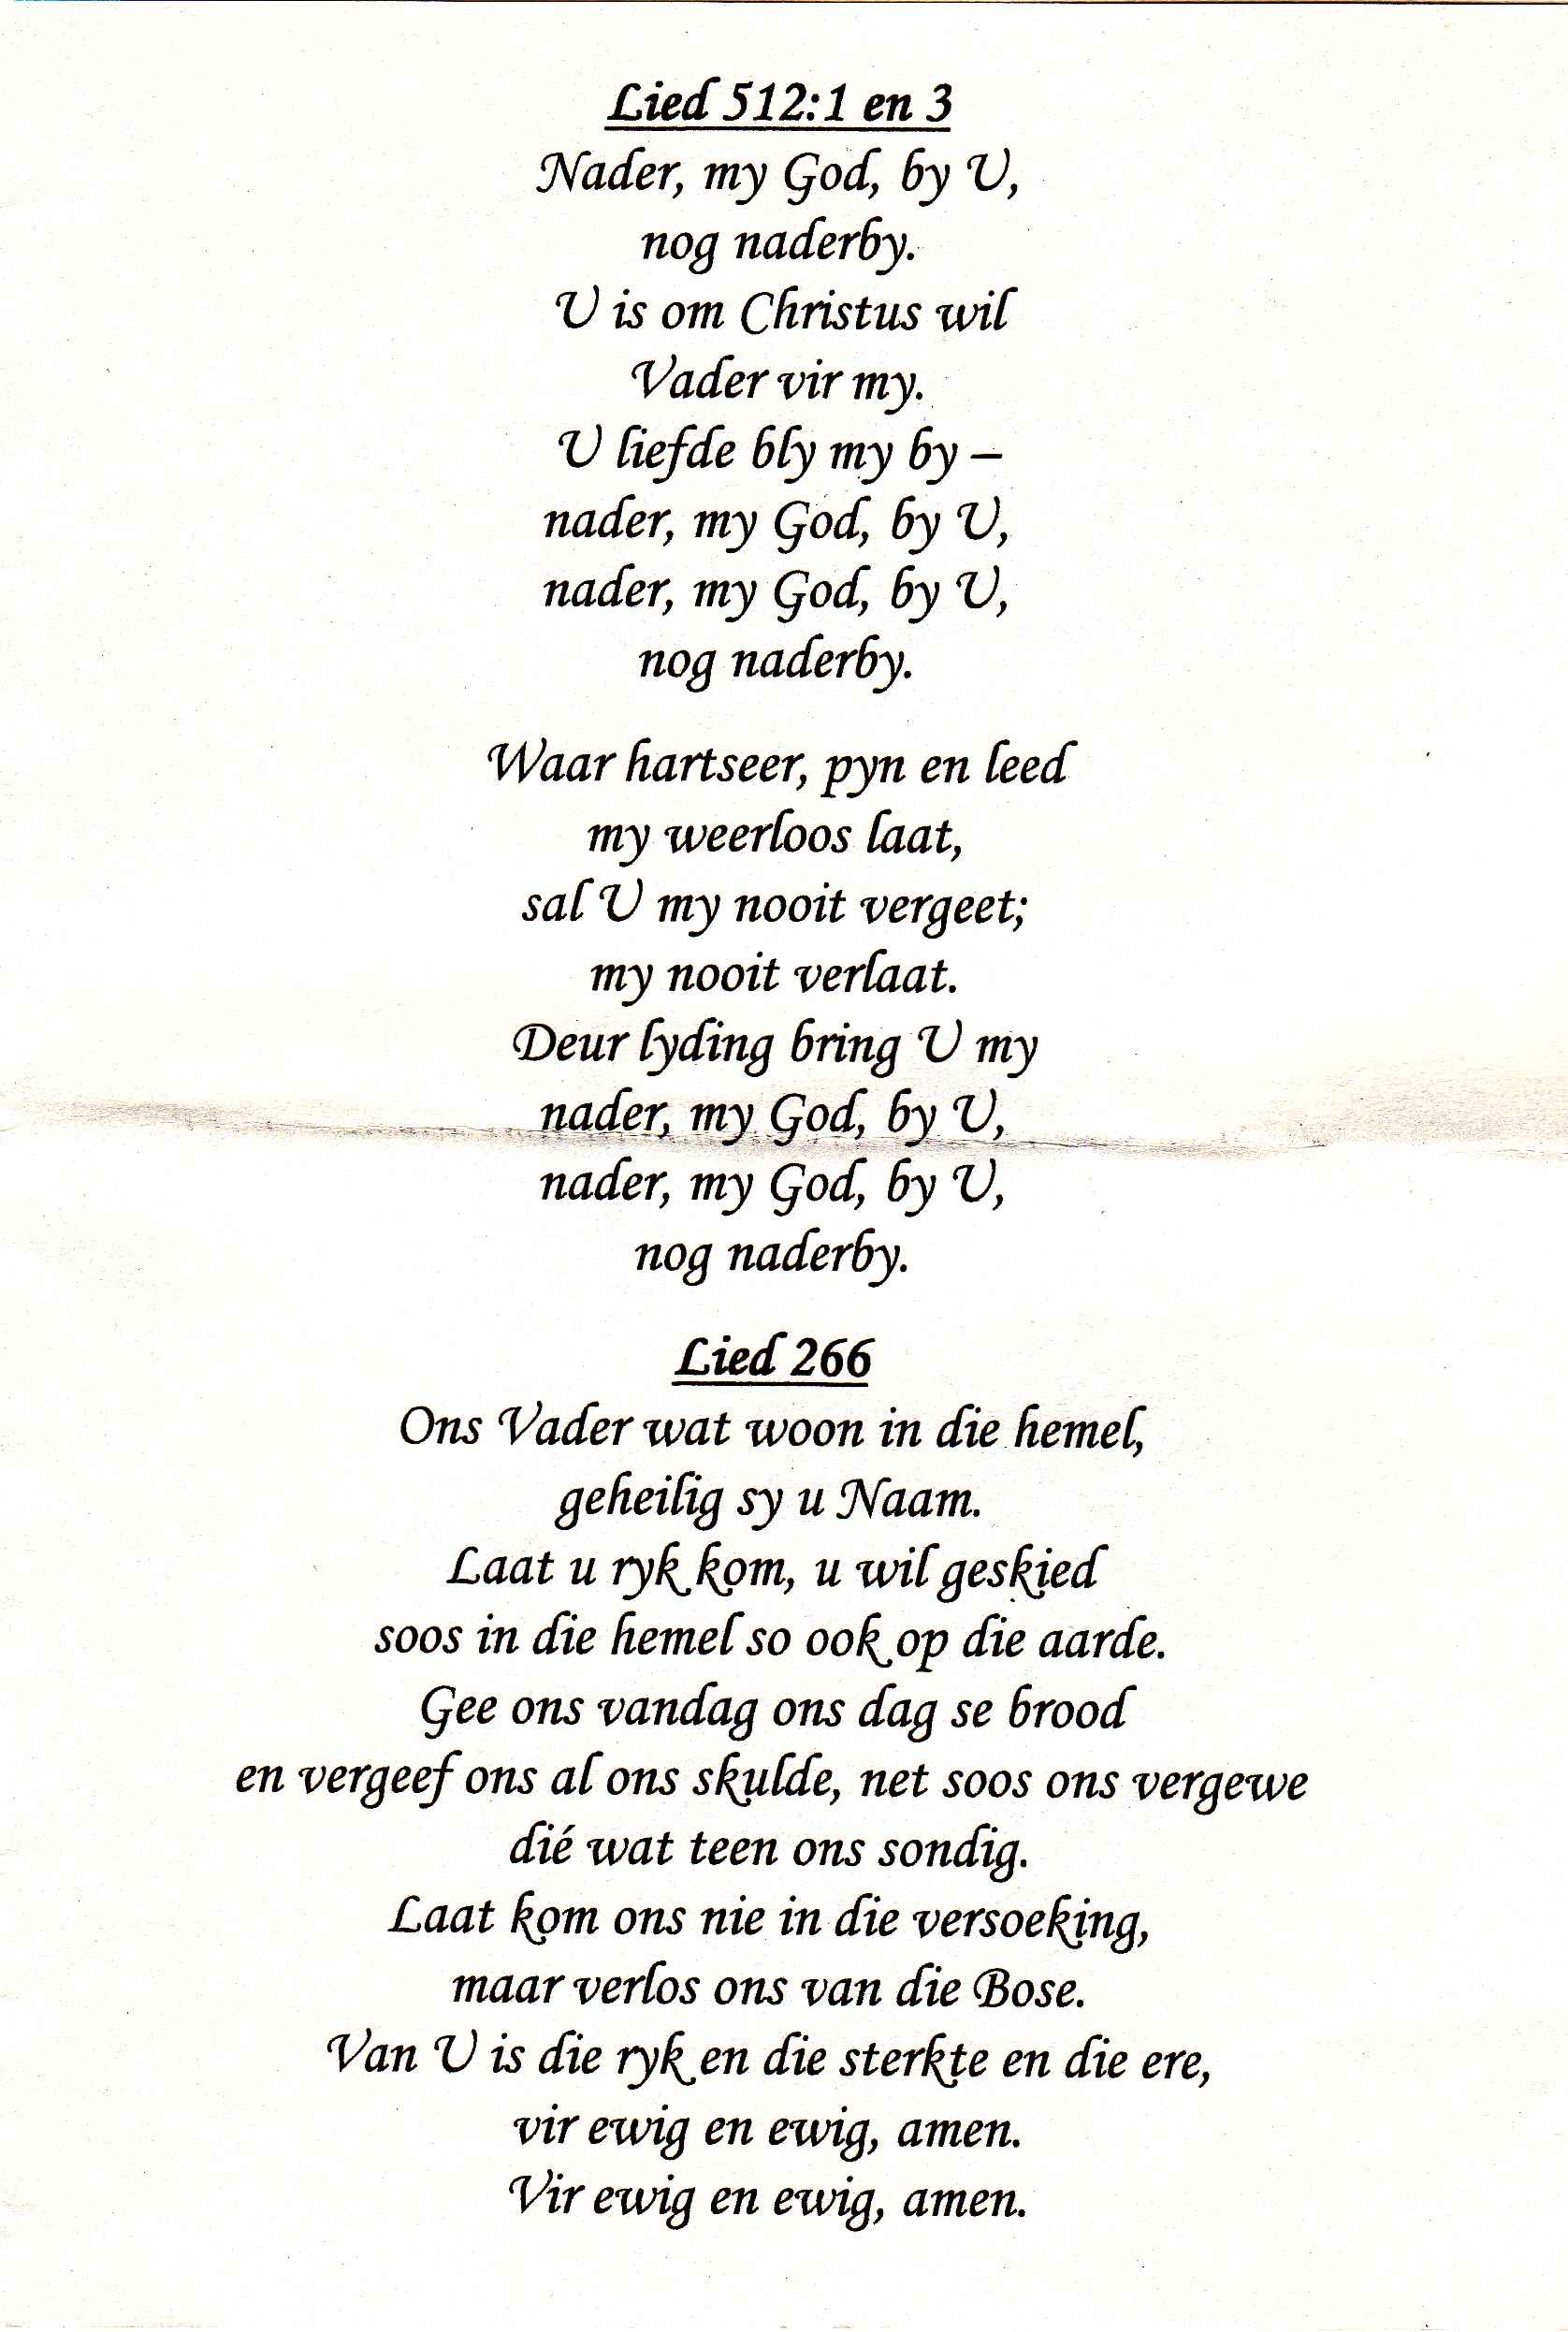 Lied 512:1 en 3
Nader, my God, by U,
nog naderby.
U is om Christus wil
Vader vir my.
U liefde bly my by –
nader, my God, by U,
nader, my God, by U,
nog naderby.
Waar hartseer, pyn en leed
my weerloos laat,
sal U my nooit vergeet;
my nooit verlaat.
Deur lyding bring U my
nader, my God, by U,
nader, my God, by U,
nog naderby.
Lied 266
Ons Vader wat woon in die hemel,
geheilig sy u Naam.
Laat u ryk kom, u wil geskied
soos in die hemel so ook op die aarde.
Gee ons vandag ons dag se brood
en vergeef ons al ons skulde, net soos ons vergewe
dié wat teen ons sondig.
Laat kom ons nie in die versoeking,
maar verlos ons van die Bose.
Van U is die ryk en die sterkte en die ere,
vir ewig en ewig, amen.
Vir ewig en ewig, amen.